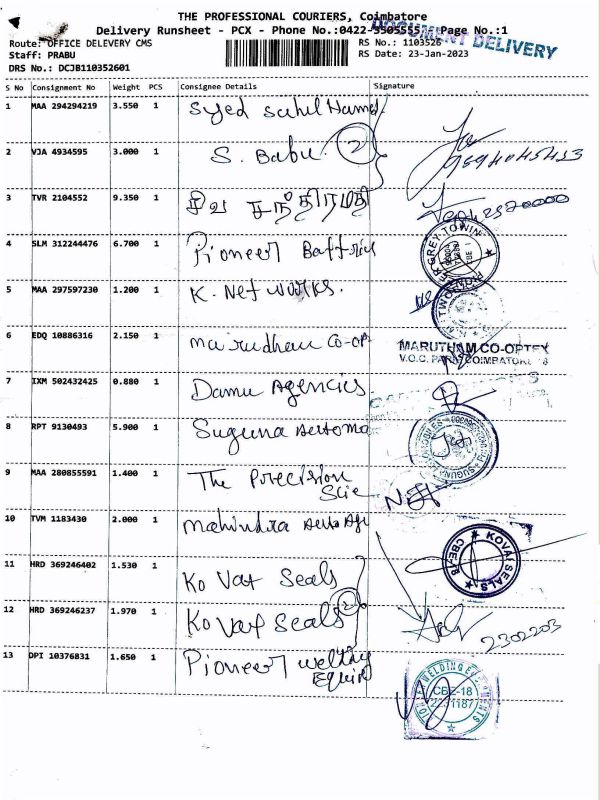 THE PROFESSIONAL COURIERS, Coimbatore
Delivery Runsheet - PCX - Phone No.:0422-3505555, Page No.:1
DOCUMENT DELIVERY
Route: OFFICE DELEVERY CMS
RS No.: 1103526
Staff: PRABU
RS Date: 23-Jan-2023
DRS No.: DCJB110352601
S No Consignment No Weight PCS Consignee Details Signature
1 MAA 294294219 3.550 1 Syed Sahil Hamed
2 VJA 4934595 3.000 1 S. Babu 2
3 TVR 2104552 9.350 1 சிவ சந்திரமதி
4 SLM 312244476 6.700 1 Pioneer Batteries
5 MAA 297597230 1.200 1 K. Net works.
6 EDQ 10886316 2.150 1 Marudham Co-op
MARUTHAM CO-OPTEX
V.O.C. PARK, COIMBATORE-18
7 IXM 502432425 0.880 1 Damu Agencies
8 RPT 9130493 5.900 1 Suguna Automo
9 MAA 280855591 1.400 1 The Precision
Scie
10 TVM 1183430 2.000 1 Mahindra Auto Age
11 HRD 369246402 1.530 1 Ko Vai Seals
KOVAI SEALS
CBE-18
12 HRD 369246237 1.970 1 Ko Vai Seals 2
2302203
13 DPI 10376831 1.650 1 Pioneer Welding
Equip
CBE-18
2231187